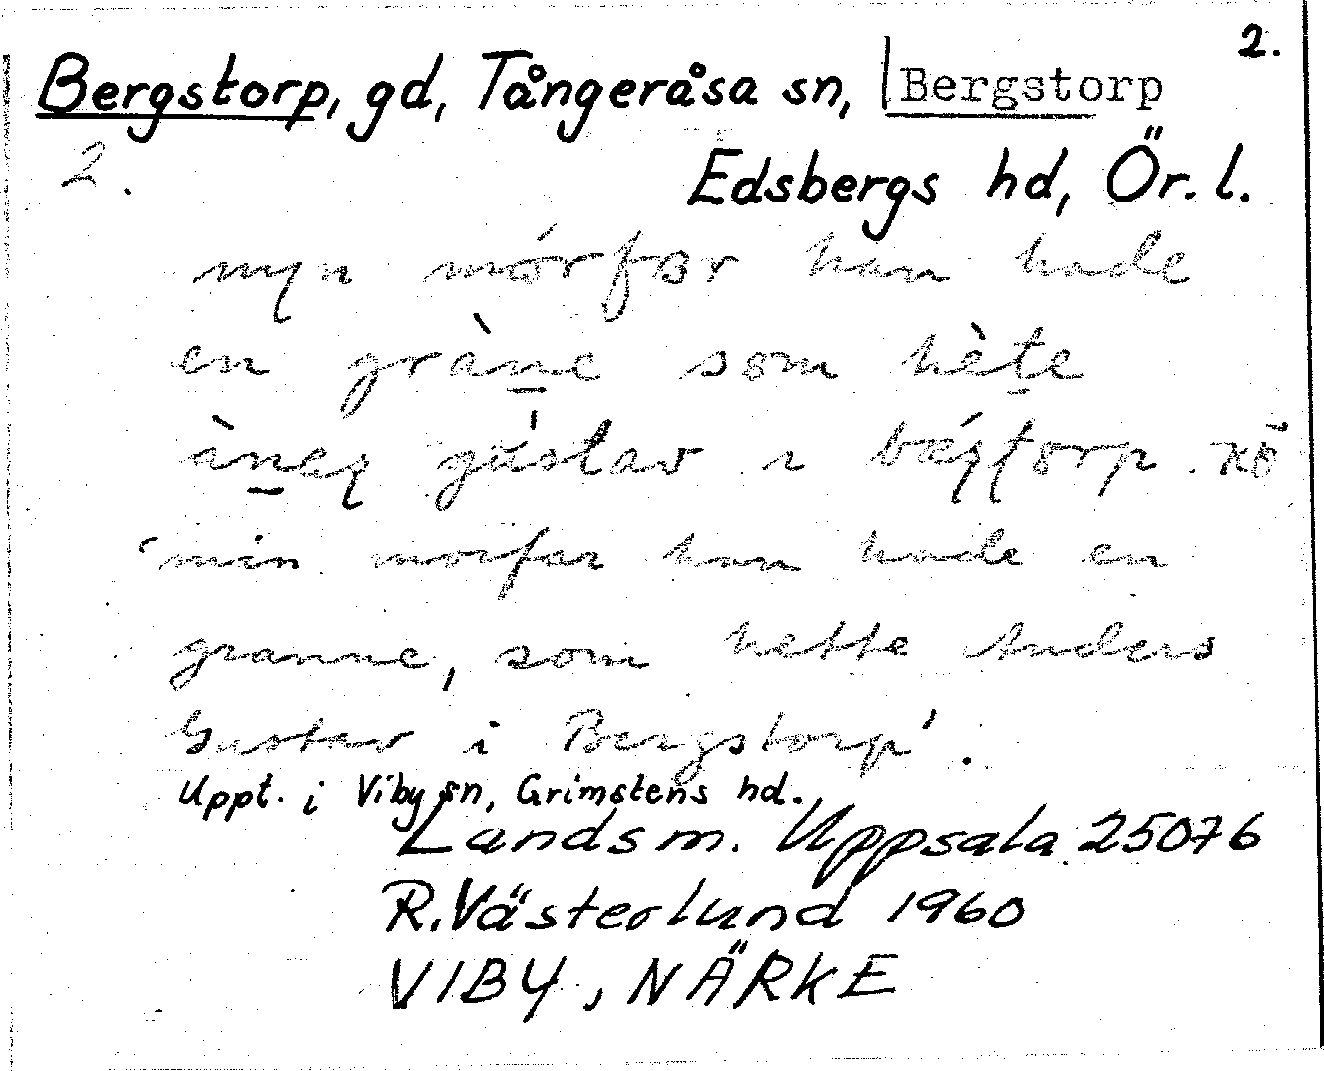 2.
Bergstorp, gd, Tångeråsa sn, Bergstorp
2. Edsbergs hd, Ör. l.
myn mórfar han hade
en gràne som hète
àneʂ gústav ı
'min morfar han hade en
granne, som hette Anders
Gustav i Bergstorp'.
Uppt. i Viby sn, Grimstens hd.,
Landsm. Uppsala 25076
R. Västerlund 1960
VIBY, NÄRKE